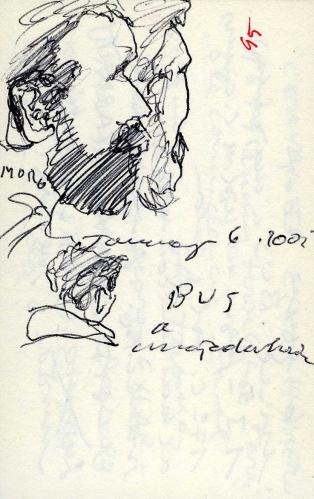 95
MORO
January 6. 2002
BUS
a